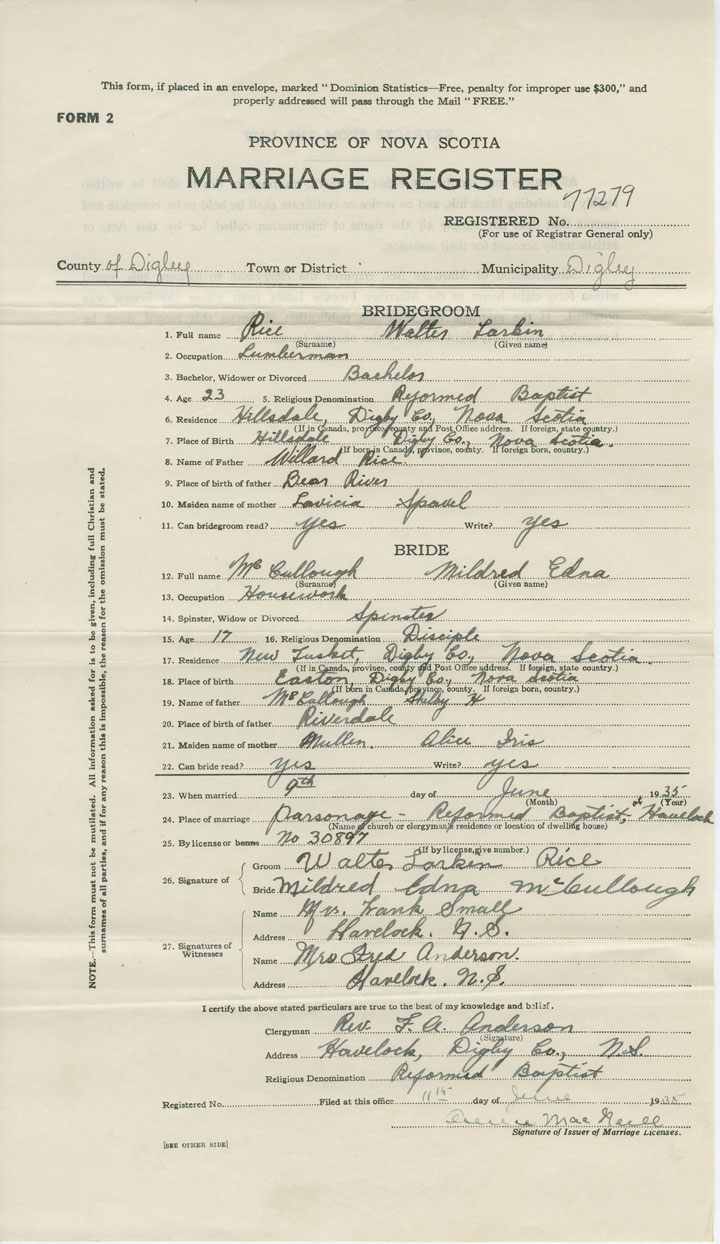 This form, if placed in an envelope, marked "Dominion Statistics—Free, penalty for improper use $300," and
properly addressed will pass through the Mail "FREE."
FORM 2
PROVINCE OF NOVA SCOTIA
MARRIAGE REGISTER
77279
REGISTERED No.
(For use of Registrar General only)
County of Digby Town or District Municipality Digby
BRIDEGROOM
1. Full name Rice Walter Larkin
(Surname) (Given name)
2. Occupation Lumberman
3. Bachelor, Widower or Divorced Bachelor
4. Age 23 5. Religious Denomination Reformed Baptist
6. Residence Hillsdale, Digby Co., Nova Scotia
(If in Canada, province, county and Post Office address. If foreign, state country.)
7. Place of Birth Hillsdale Digby Co., Nova Scotia.
(If born in Canada, province, county. If foreign born, country.)
8. Name of Father Willard Rice.
9. Place of birth of father Bear River
10. Maiden name of mother Lavicia
11. Can bridegroom read? yes Write? yes
BRIDE
12. Full name McCullough Mildred Edna
(Surname) (Given name)
13. Occupation Housework
14. Spinster, Widow or Divorced Spinster
15. Age 17 16. Religious Denomination Disciple
17. Residence New Tusket, Digby Co., Nova Scotia.
(If in Canada, province, county and Post Office address. If foreign, state country.)
18. Place of birth Easton, Digby Co., Nova Scotia
(If born in Canada, province, county. If foreign born, country.)
19. Name of father McCullough Shelby H
20. Place of birth of father Riverdale
21. Maiden name of mother Mullen. Alice Iris
22. Can bride read? yes Write? yes
23. When married 9th day of June 1935
(Month) (Year)
24. Place of marriage Parsonage - Reformed Baptist, of Havelock
(Name of church or clergyman's residence or location of dwelling house)
25. By license or banns No 30897
(If by license, give number.)
26. Signature of
Groom Walter Larkin Rice
Bride Mildred Edna McCullough
27. Signatures of Witnesses
Name Mrs. Frank Small
Address Havelock. N.S.
Name Mrs Fred Anderson.
Address Havelock. N.S.
I certify the above stated particulars are true to the best of my knowledge and belief.
Clergyman Rev. F. A. Anderson
(Signature)
Address Havelock, Digby Co., N.S.
Religious Denomination Reformed Baptist
Registered No. Filed at this office 11th day of June 1935
MacNeill
Signature of Issuer of Marriage Licenses.
[SEE OTHER SIDE]
NOTE.—This form must not be mutilated. All information asked for is to be given, including full Christian and
surnames of all parties, and if for any reason this is impossible, the reason for the omission must be stated.